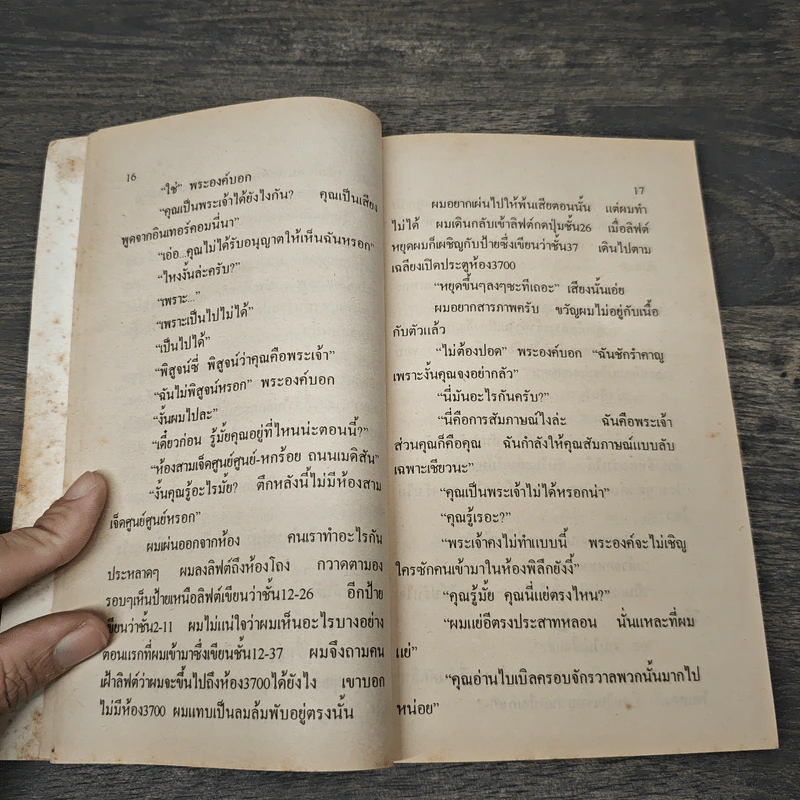 16
“ใช่” พระองค์บอก
“คุณเป็นพระเจ้าได้ยังไงกัน? คุณเป็นเสียง
พูดจากอินเทอร์คอมนี่นา”
“เอ่อ...คุณไม่ได้รับอนุญาตให้เห็นฉันหรอก”
“ไหงงั้นล่ะครับ?”
“เพราะ...”
“เพราะเป็นไปไม่ได้”
“เป็นไปได้”
“พิสูจน์ซี่ พิสูจน์ว่าคุณคือพระเจ้า”
“ฉันไม่พิสูจน์หรอก” พระองค์บอก
“งั้นผมไปละ”
“เดี๋ยวก่อน รู้มั้ยคุณอยู่ที่ไหนน่ะตอนนี้?”
“ห้องสามเจ็ดศูนย์ศูนย์-หกร้อย ถนนเมดิสัน”
“งั้นคุณรู้อะไรมั้ย? ตึกหลังนี้ไม่มีห้องสาม
เจ็ดศูนย์ศูนย์หรอก”
ผมเผ่นออกจากห้อง คนเราทำอะไรกัน
ประหลาดๆ ผมลงลิฟต์ถึงห้องโถง กวาดตามอง
รอบๆเห็นป้ายเหนือลิฟต์เขียนว่าชั้น12-26 อีกป้าย
เขียนว่าชั้น2-11 ผมไม่แน่ใจว่าผมเห็นอะไรบางอย่าง
ตอนแรกที่ผมเข้ามาซึ่งเขียนชั้น12-37 ผมจึงถามคน
เฝ้าลิฟต์ว่าผมจะขึ้นไปถึงห้อง3700ได้ยังไง เขาบอก
ไม่มีห้อง3700 ผมแทบเป็นลมล้มพับอยู่ตรงนั้น
17
ผมอยากเผ่นไปให้พ้นเสียตอนนั้น แต่ผมทำ
ไม่ได้ ผมเดินกลับเข้าลิฟต์กดปุ่มชั้น26 เมื่อลิฟต์
หยุดผมก็เผชิญกับป้ายซึ่งเขียนว่าชั้น37 เดินไปตาม
เฉลียงเปิดประตูห้อง3700
“หยุดขึ้นๆลงๆซะทีเถอะ” เสียงนั้นเอ่ย
ผมอยากสารภาพครับ ขวัญผมไม่อยู่กับเนื้อ
กับตัวแล้ว
“ไม่ต้องปอด” พระองค์บอก “ฉันชักรำคาญ
เพราะงั้นคุณจงอย่ากลัว”
“นี่มันอะไรกันครับ?”
“นี่คือการสัมภาษณ์ไงล่ะ ฉันคือพระเจ้า
ส่วนคุณก็คือคุณ ฉันกำลังให้คุณสัมภาษณ์แบบลับ
เฉพาะเชียวนะ”
“คุณเป็นพระเจ้าไม่ได้หรอกน่า”
“คุณรู้เรอะ?”
“พระเจ้าคงไม่ทำแบบนี้ พระองค์จะไม่เชิญ
ใครซักคนเข้ามาในห้องพิลึกยังงี้”
“คุณรู้มั้ย คุณนี่แย่ตรงไหน?”
“ผมแย่อีตรงประสาทหลอน นั่นแหละที่ผม
แย่”
“คุณอ่านไบเบิลครอบจักรวาลพวกนั้นมากไป
หน่อย”